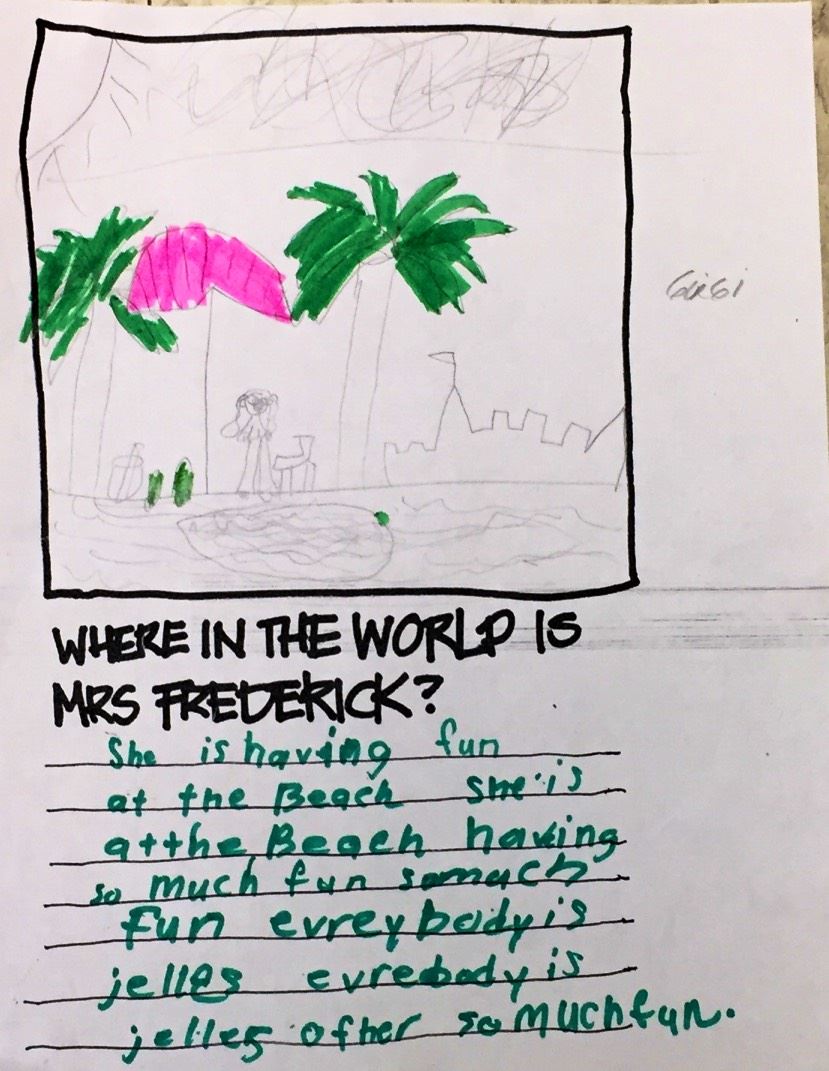 WHERE IN THE WORLD IS
MRS FREDERICK?
She is having fun
at the Beach she is
atthe Beach having
so much fun somach
fun evreybody is
jelles evrebody is
jelles ofher so much fun.